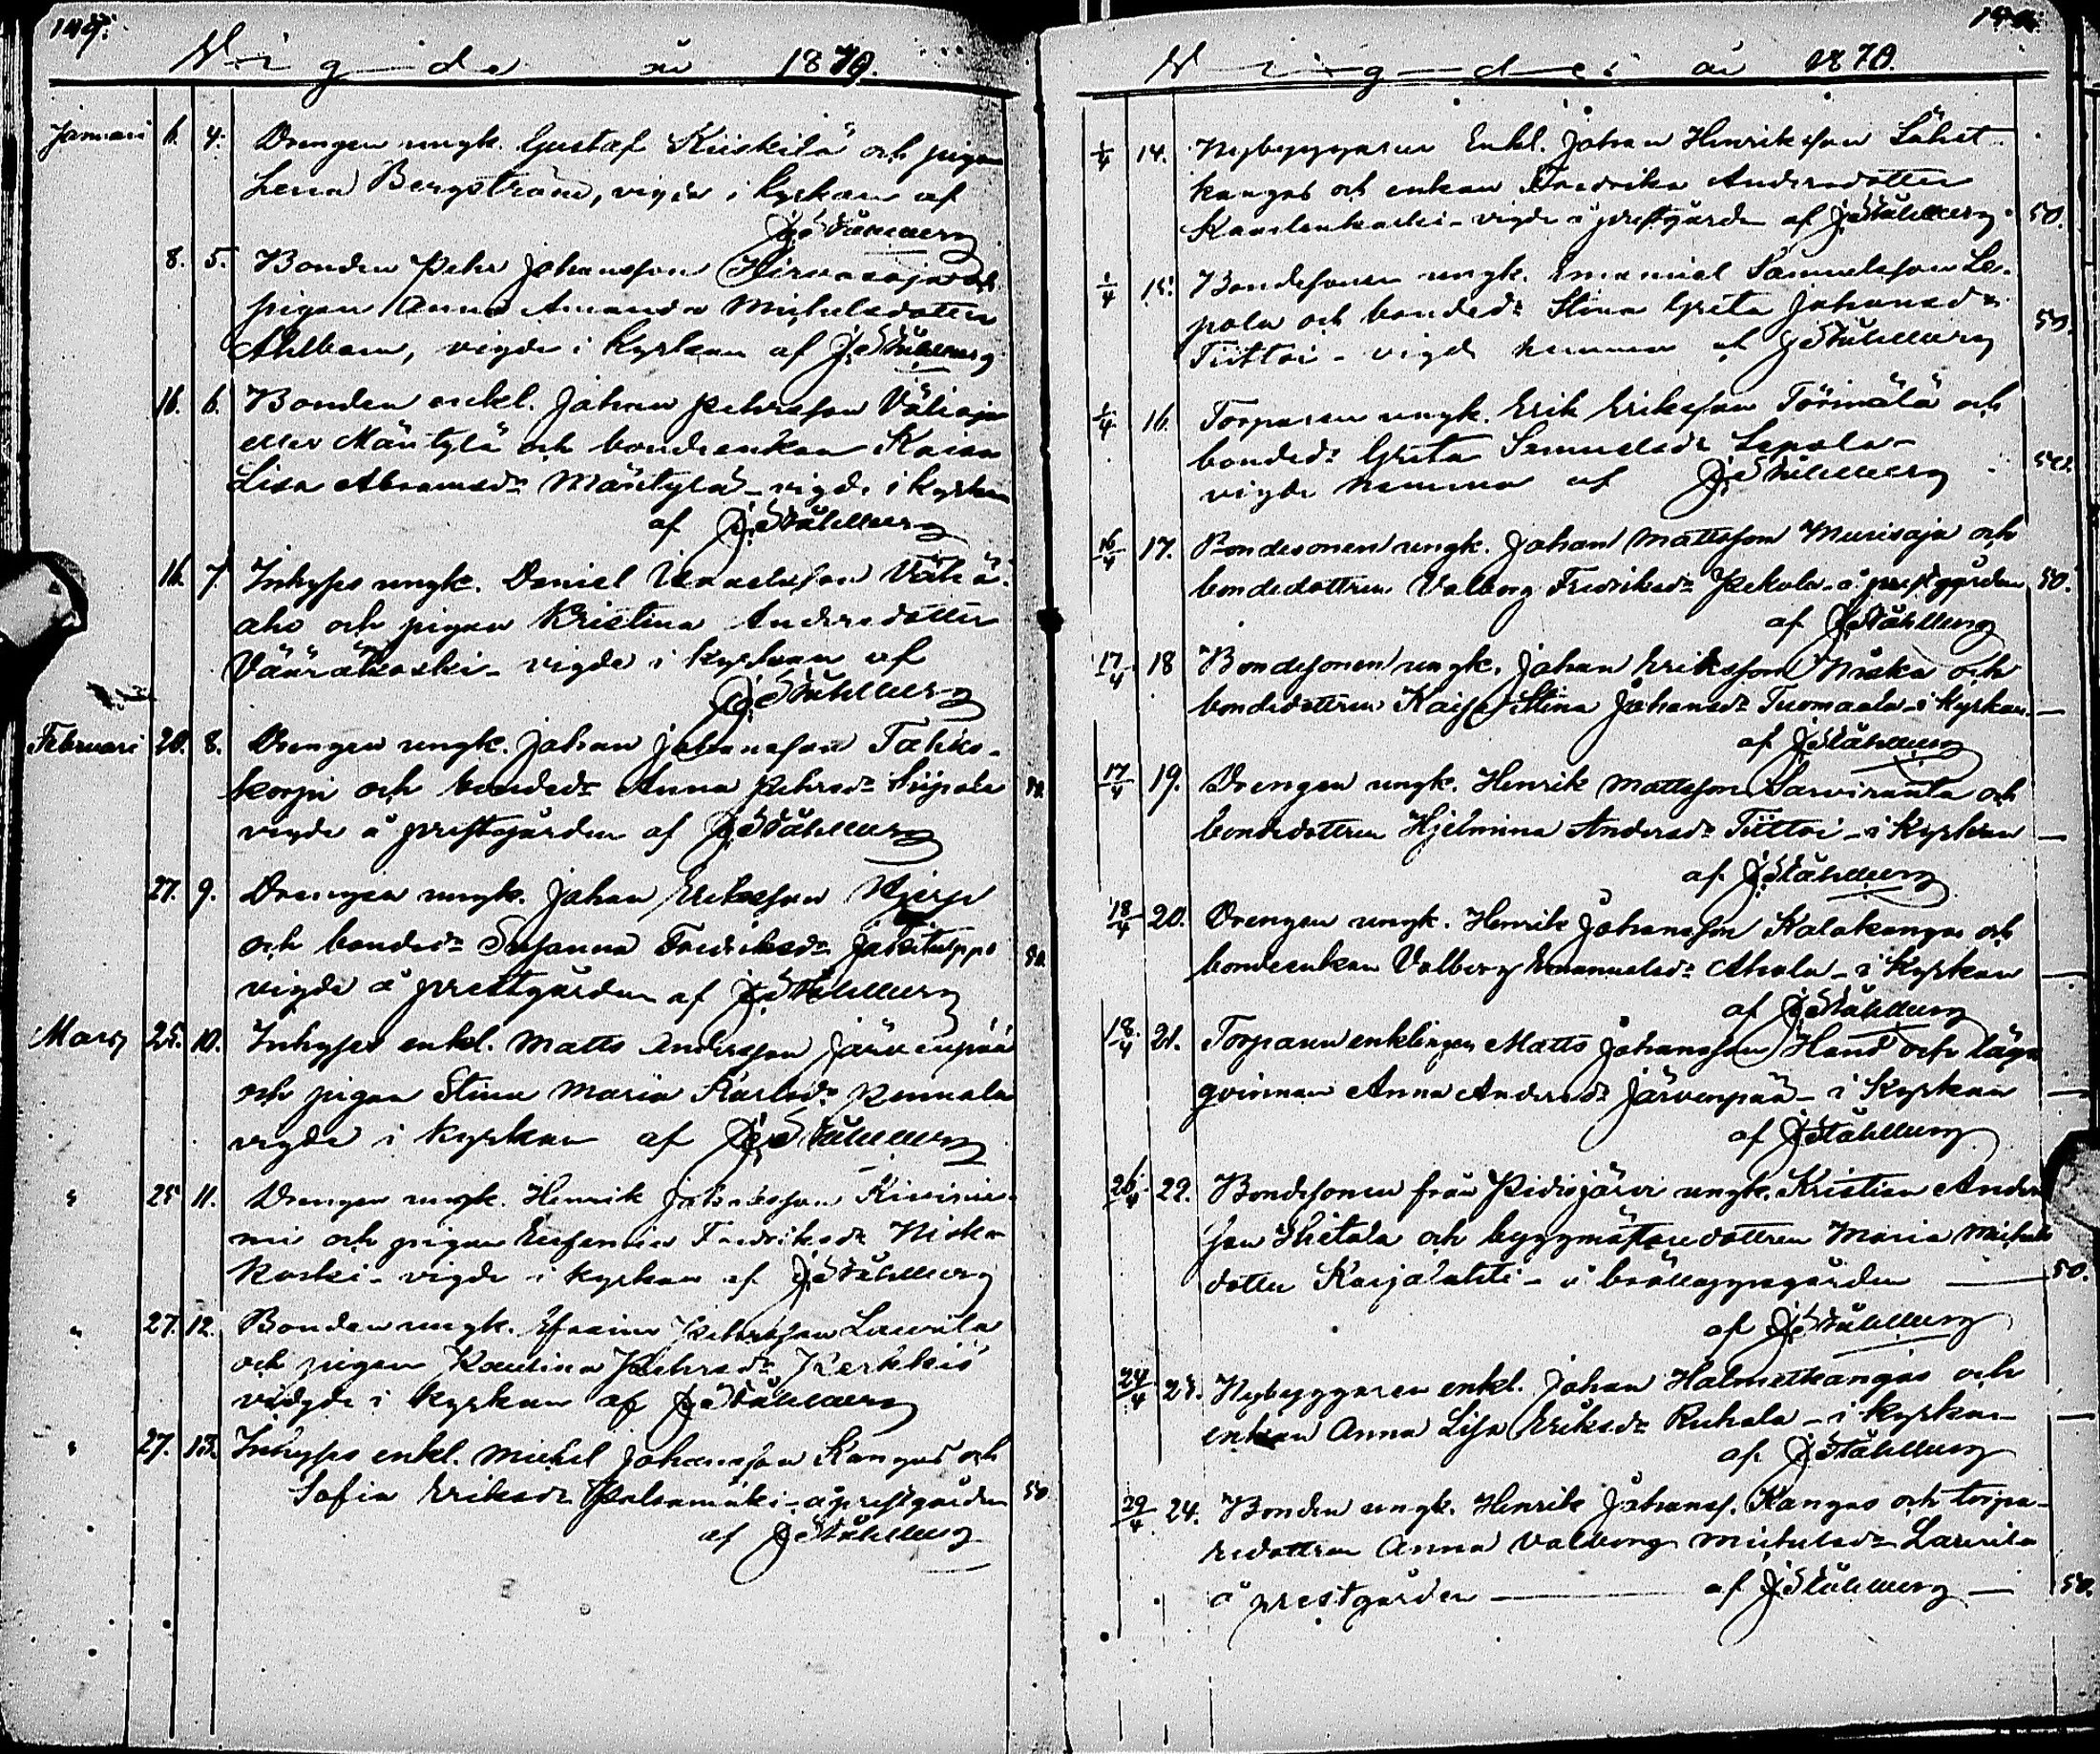 149.
Vigde år 1870.
Januari 6. 4. Drengen ungk. Gustaf Kiiskilä och pigan
Lena Bergström, vigde i kyrkan af
J. Ståhlberg
8. 5. Bonden Pehr Johansson Hirvasoja och
pigan Anna Amanda Michelsdotter
Ahlbom, vigde i kyrkan af J. Ståhlberg
16. 6. Bonden enkl. Johan Pehrsson Välioja
eller Mäntylä och bondeenkan Kaisa
Lisa Abramsdr Mäntylä - vigde i kyrkan
af J. Ståhlberg
16. 7. Inhyses ungk. Daniel Vähä-
aho och pigan Kristina Andersdotter
Vääräkoski - vigde i kyrkan af
J. Ståhlberg
Februari 20. 8. Drengen ungk. Johan Johansson Tahko-
korpi och bondedr Anna Pehrsdr Siipola
vigde å prestgården af J. Ståhlberg 50.
27. 9. Drengen ungk. Johan Eriksson
och bondedr Susanna Fredriksdr
vigde å prestgården af J. Ståhlberg 50.
Mars 25. 10. Inhyses enkl. Matts Andersson Järvenpää
och pigan Stina Maria Karlsdr Pennala
vigde i kyrkan af J. Ståhlberg
" 25 11. Drengen ungk. Henrik Johansson Kivinie-
mi och pigan Eufemia Fredriksdr Niska-
koski - vigde i kyrkan af J. Ståhlberg
" 27. 12. Bonden ungk. Efraim Pehrsson Laurila
och pigan Karolina Pehrsdr Kerkkiö
vigde i kyrkan af J. Ståhlberg
" 27. 13. Inhyses enkl. Michel Johansson Kangas och
Sofia Eriksdr Palsamäki - å prestgården 50
af J. Ståhlberg
Vigde år 1870.
1/4 14. Nybyggaren Enkl. Johan Henriksson Lähet-
kangas och enkan Fredrika Andersdotter
- vigde å prestgården af J. Ståhlberg 50.
1/4 15. Bondesonen ungk. Emanuel Samuelsson Le-
pola och bondedr Stina Greta Johansdr
Tiittoi - vigde hemma af J. Ståhlberg 50.
1/4 16. Torparen ungk. Erik Eriksson Törmälä och
bondedr Greta Samuelsdr Lepola -
vigde hemma af J. Ståhlberg 50.
16/4 17. Bondesonen ungk. Johan Mattsson Murisoja och
bondedottren Valborg Fredriksdr Pekola - å prestgården 50.
af J. Ståhlberg
17/4 18 Bondesonen ungk. Johan Eriksson Niska och
bondedottren Kaisa Stina Johansdr Tuomaala - i kyrkan. —
af J. Ståhlberg
17/4 19. Drengen ungk. Henrik Mattsson Sarviranta och
bondedottren Hjelmina Andersdr Tiittoi - i kyrkan —
af J. Ståhlberg
18/4 20. Drengen ungk. Henrik Johansson Kalakangas och
bondeenkan Valborg Emanuelsdr Ahola - i kyrkan —
af J. Ståhlberg
18/4 21. Torparen enklingen Matts Johansson Hand och läge
qvinnan Anna Andersdr Järvenpää - i kyrkan —
af J. Ståhlberg
26/4 22. Bondesonen från Pidisjärvi ungk. Kristian Anders
son och byggmästaredottren Maria Michels
dotter Karjalahti - å bröllopsgården — 50.
af J. Ståhlberg
24/4 23. Nybyggaren enkl. Johan Halmetkangas och
enkan Anna Lisa Eriksdr Ruhala - i kyrkan —
af J. Ståhlberg
29/4 24. Bonden ungk. Henrik Johanss. Kangas och torpa-
redottren Anna Valborg Michelsdr Laurila
å prestgården — af J. Ståhlberg — 50.